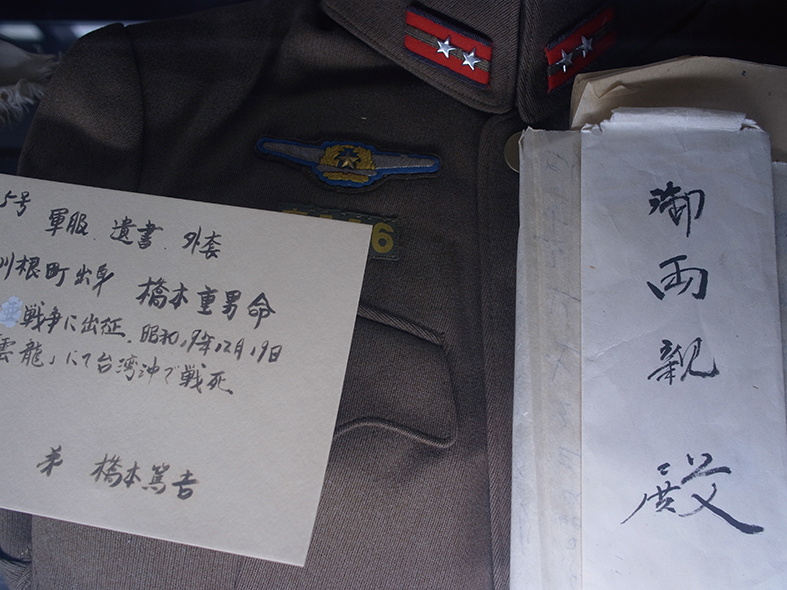 5号 軍服、遺書、外套
川根町出身 橋本重男命
亜戦争に出征、昭和19年12月19日
雲龍」にて台湾沖で戦死
弟 橋本篤吉
6
御両親殿